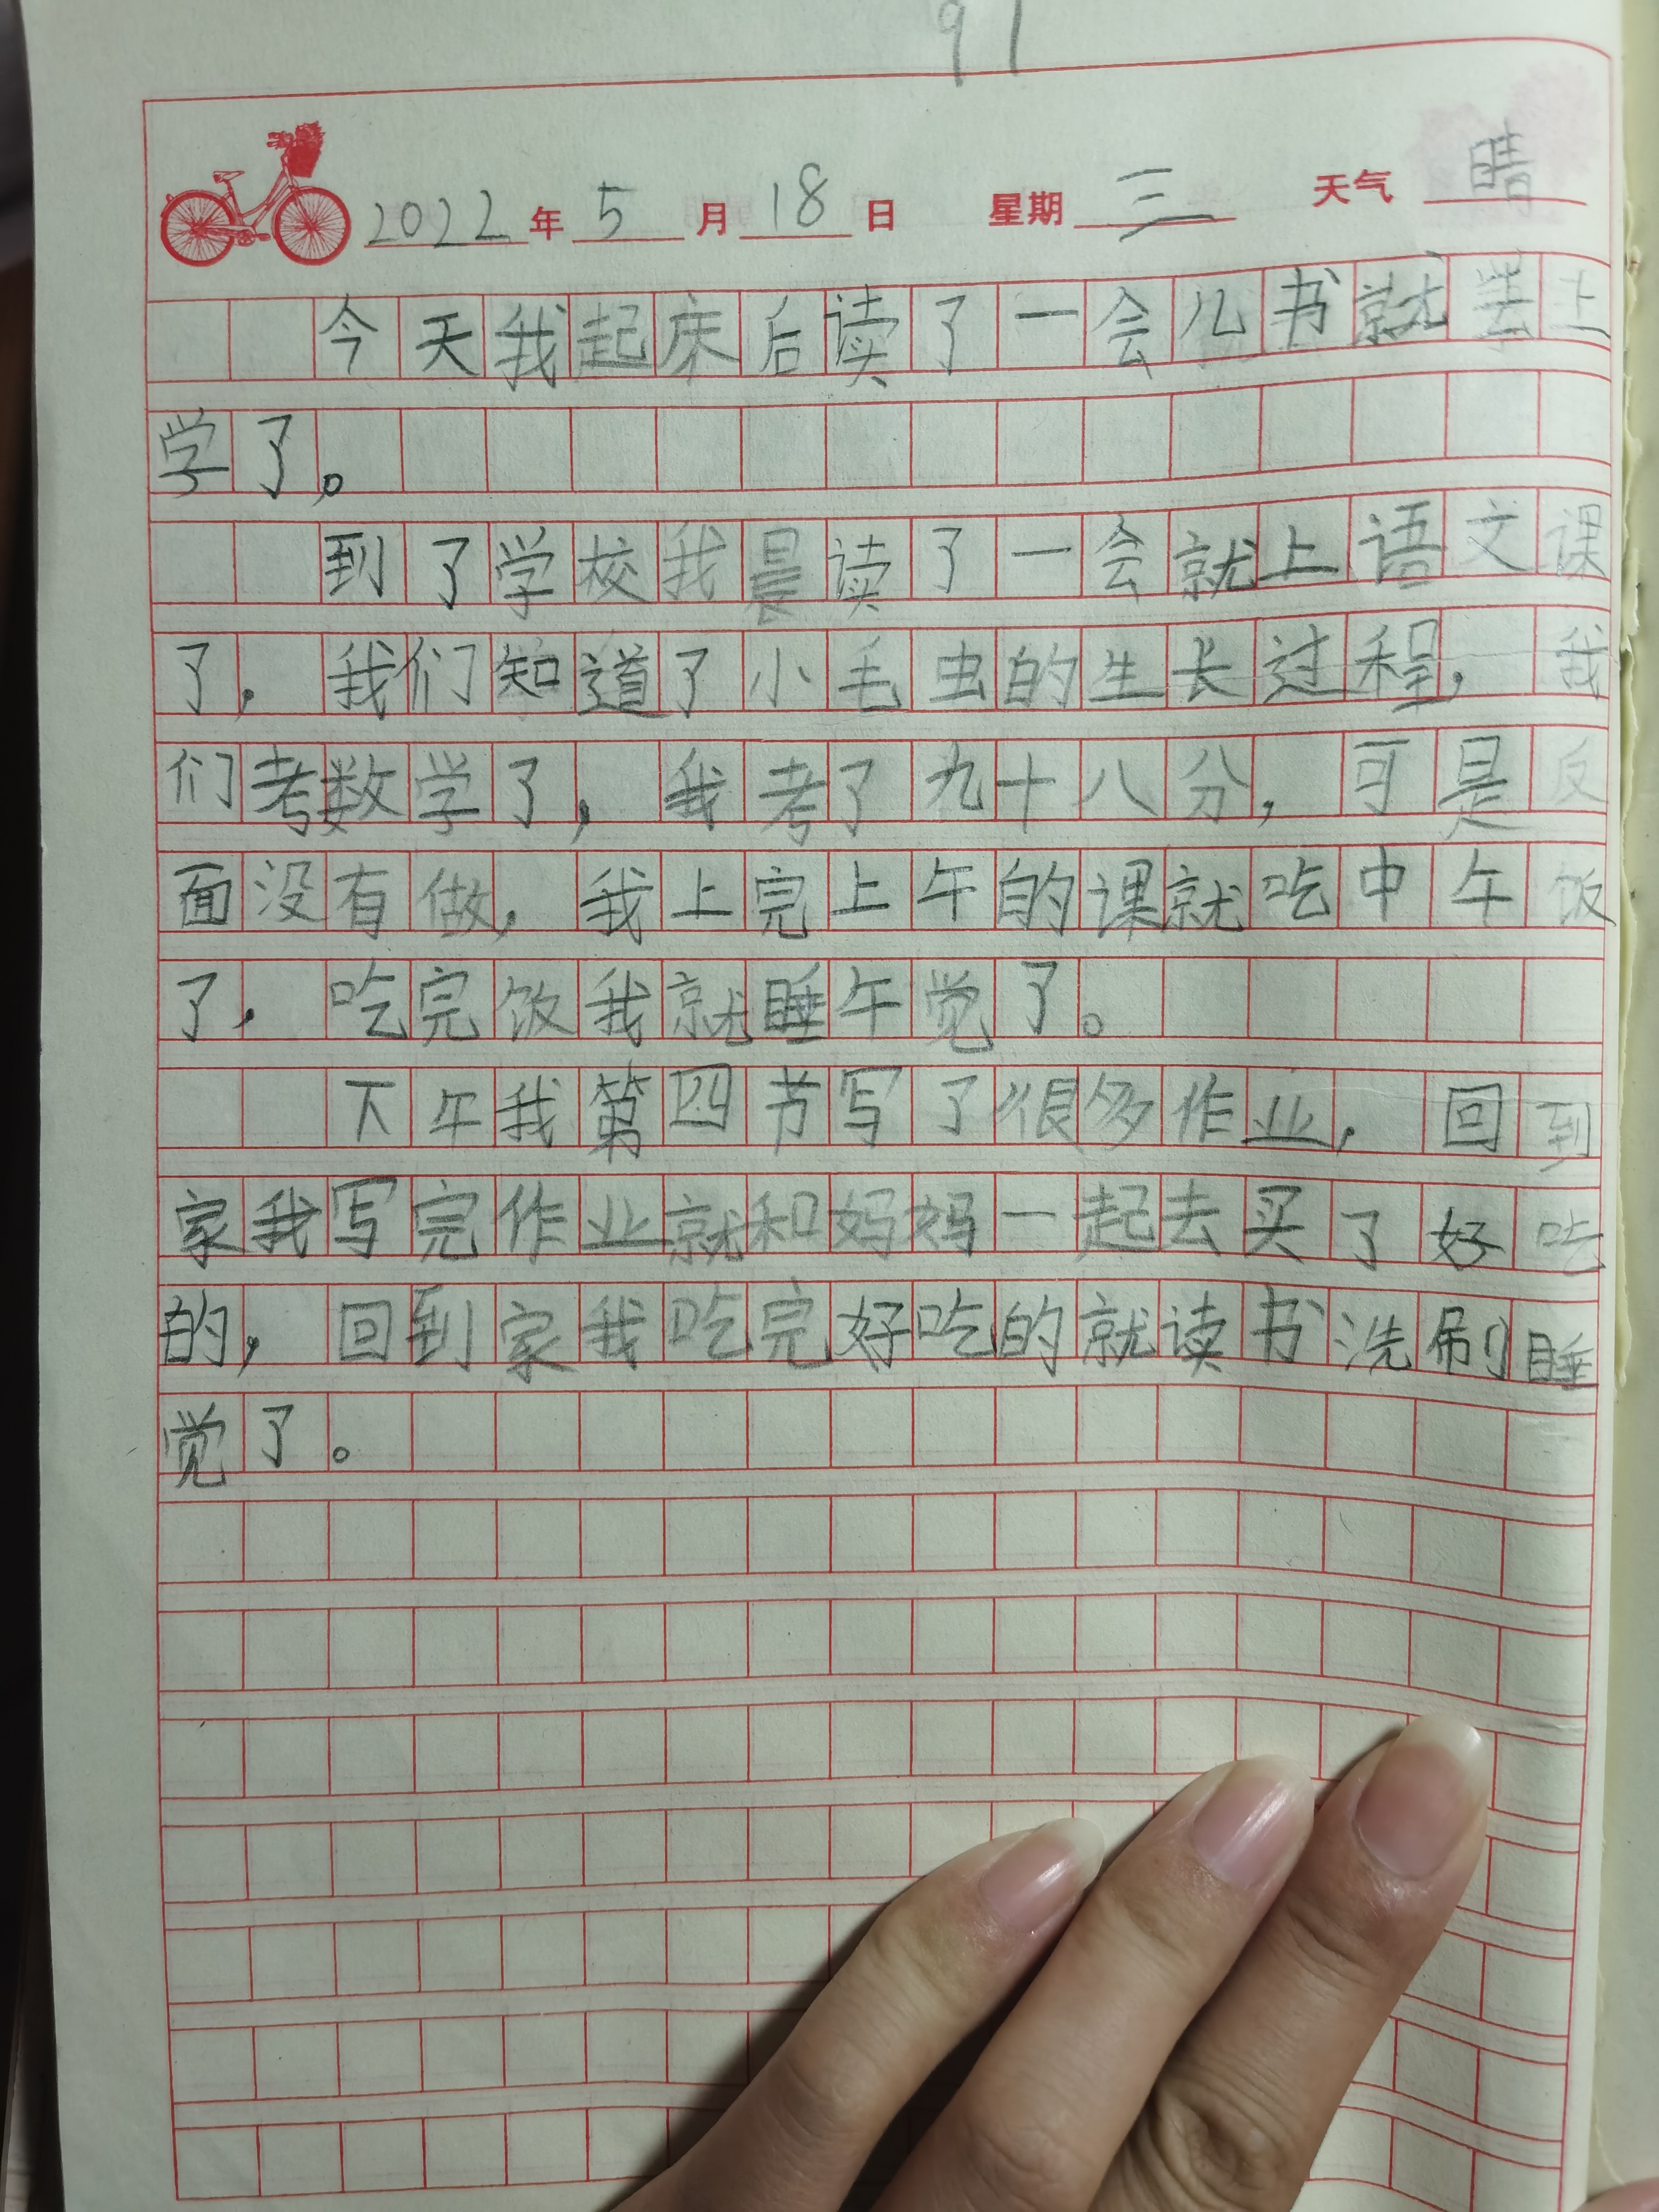 91
2022年5月18日 星期三 天气晴
今天我起床后读了一会儿书就去上
学了。
到了学校我晨读了一会就上语文课
了，我们知道了小毛虫的生长过程，我
们考数学了，我考了九十八分，可是反
面没有做，我上完上午的课就吃中午饭
了，吃完饭我就睡午觉了。
下午我第四节写了很多作业，回到
家我写完作业就和妈妈一起去买了好吃
的，回到家我吃完好吃的就读书洗刷睡
觉了。